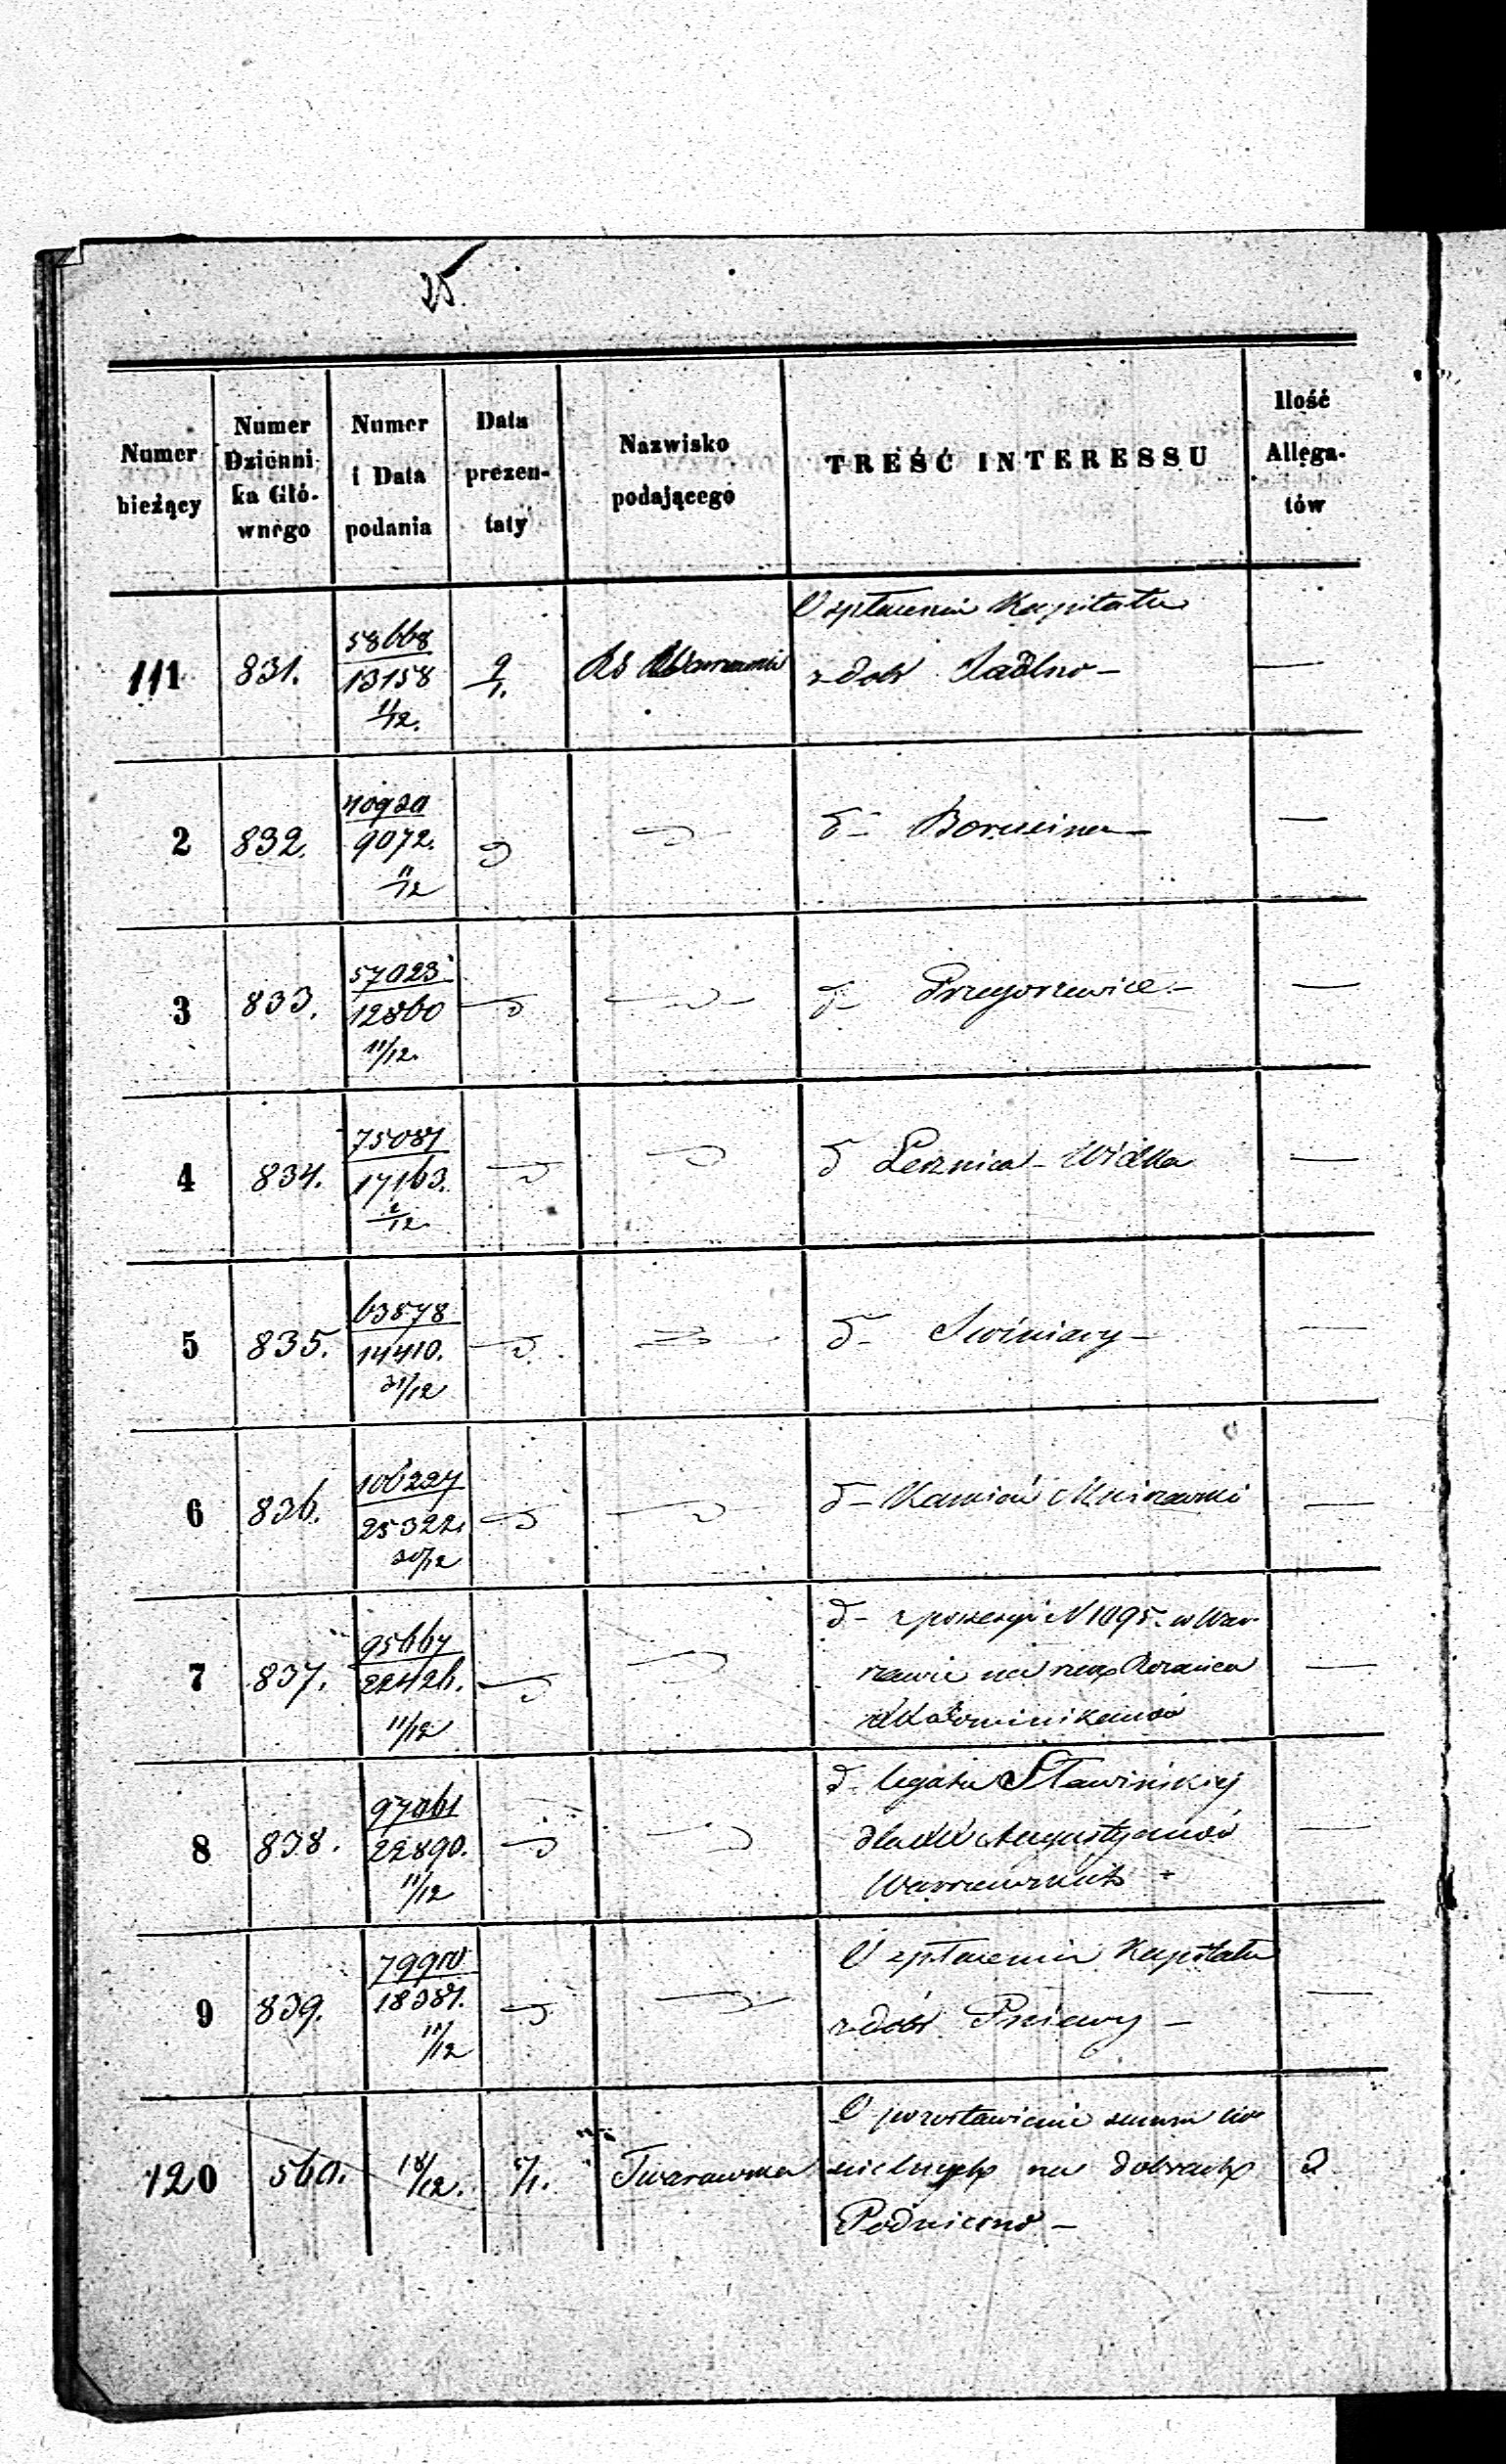 25.
Numer bieżący
Numer Dzienni- ka Głó- wnego
Numer i Data podania
Data prezen- taty
Nazwisko podającego
TREŚĆ INTERESSU
Ilość Allega- tów
111 831. 58668 13158 11/12. 9/1. O spłacenia Kapitału
z dóbr Sadlno —
2 832. 40920 9072. 11/12 d- —
3 833. 57023 12860 11/12. d- Pregorzewice —
4 834. 75087 17163. 2/12. d Leznica - Wielka —
5 835. 63878 14410. 21/12 d- Swiniary —
6 836. 106227 25322. 20/12 d- Kamion —
7 837. 95667 22426. 11/12 d- z possesyi N 1095. w War-
szawie na rzecz Rożańca
—
8 838. 97061 22890. 11/12 d- legatu Sławińskiej
dla Augustyanów
Warszawskich —
9 839. 79910 18387. 11/12 O spłacenia Kapitału
z dóbr Pniewy —
120 560. 18/12. 5/1. O pozostawienie summ ko-
ścielnych na dobrach 2